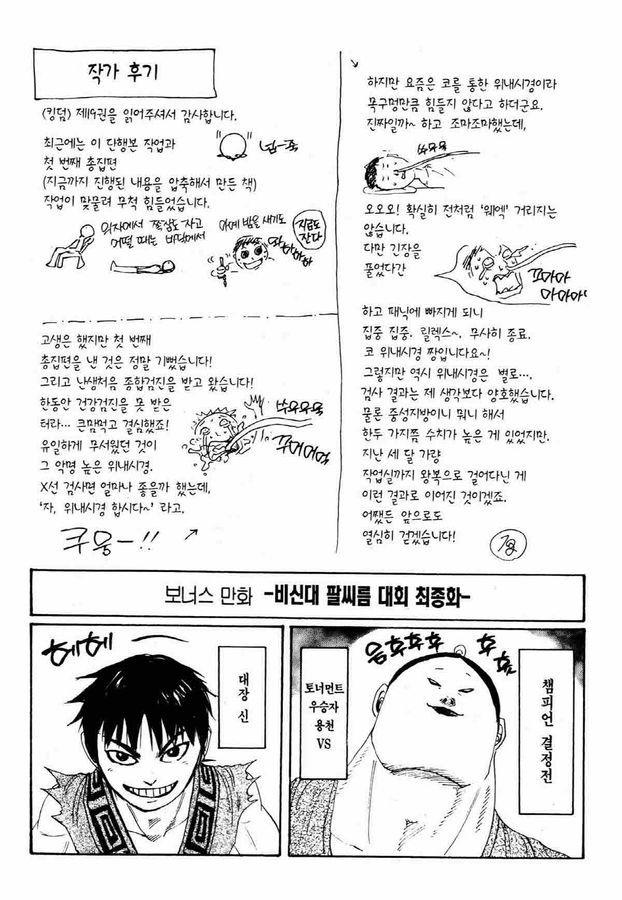 작가 후기
(킹덤) 제19권을 읽어주셔서 감사합니다.
최근에는 이 단행본 작업과
첫 번째 총집편
(지금까지 진행된 내용을 압축해서 만든 책)
작업이 맞물려 무척 힘들었습니다.
의자에서 쪽잠도 자고
어떨 때는 바닥에서
아예 밤을 새기도
지금도
잔다
하하하하
고생은 했지만 첫 번째
총집편을 낸 것은 정말 기뻤습니다!
그리고 난생처음 종합검진을 받고 왔습니다!
한동안 건강검진을 못 받은
터라… 큰맘먹고 결심했죠!
유일하게 무서웠던 것이
그 악명 높은 위내시경.
X선 검사면 얼마나 좋을까 했는데,
'자, 위내시경 합시다~' 라고.
쿠웅ー!!
하지만 요즘은 코를 통한 위내시경이라
목구멍만큼 힘들지 않다고 하더군요.
진짜일까~ 하고 조마조마했는데,
오오오! 확실히 전처럼 '웨엑' 거리지는
않습니다.
다만 긴장을
풀었다간
하고 패닉에 빠지게 되니
집중 집중. 릴렉스~. 무사히 종료.
코 위내시경 짱입니다요~!
그렇지만 역시 위내시경은 별로….
검사 결과는 제 생각보다 양호했습니다.
물론 중성지방이니 뭐니 해서
한두 가지쯤 수치가 높은 게 있었지만.
지난 세 달 가량
작업실까지 왕복으로 걸어다닌 게
이런 결과로 이어진 것이겠죠.
어쨌든 앞으로도
열심히 걷겠습니다!
보너스 만화 -비신대 팔씨름 대회 최종화-
헤헤
대장 신
음후후후
후훗
토너먼트
우승자
용천
VS
챔피언 결정전